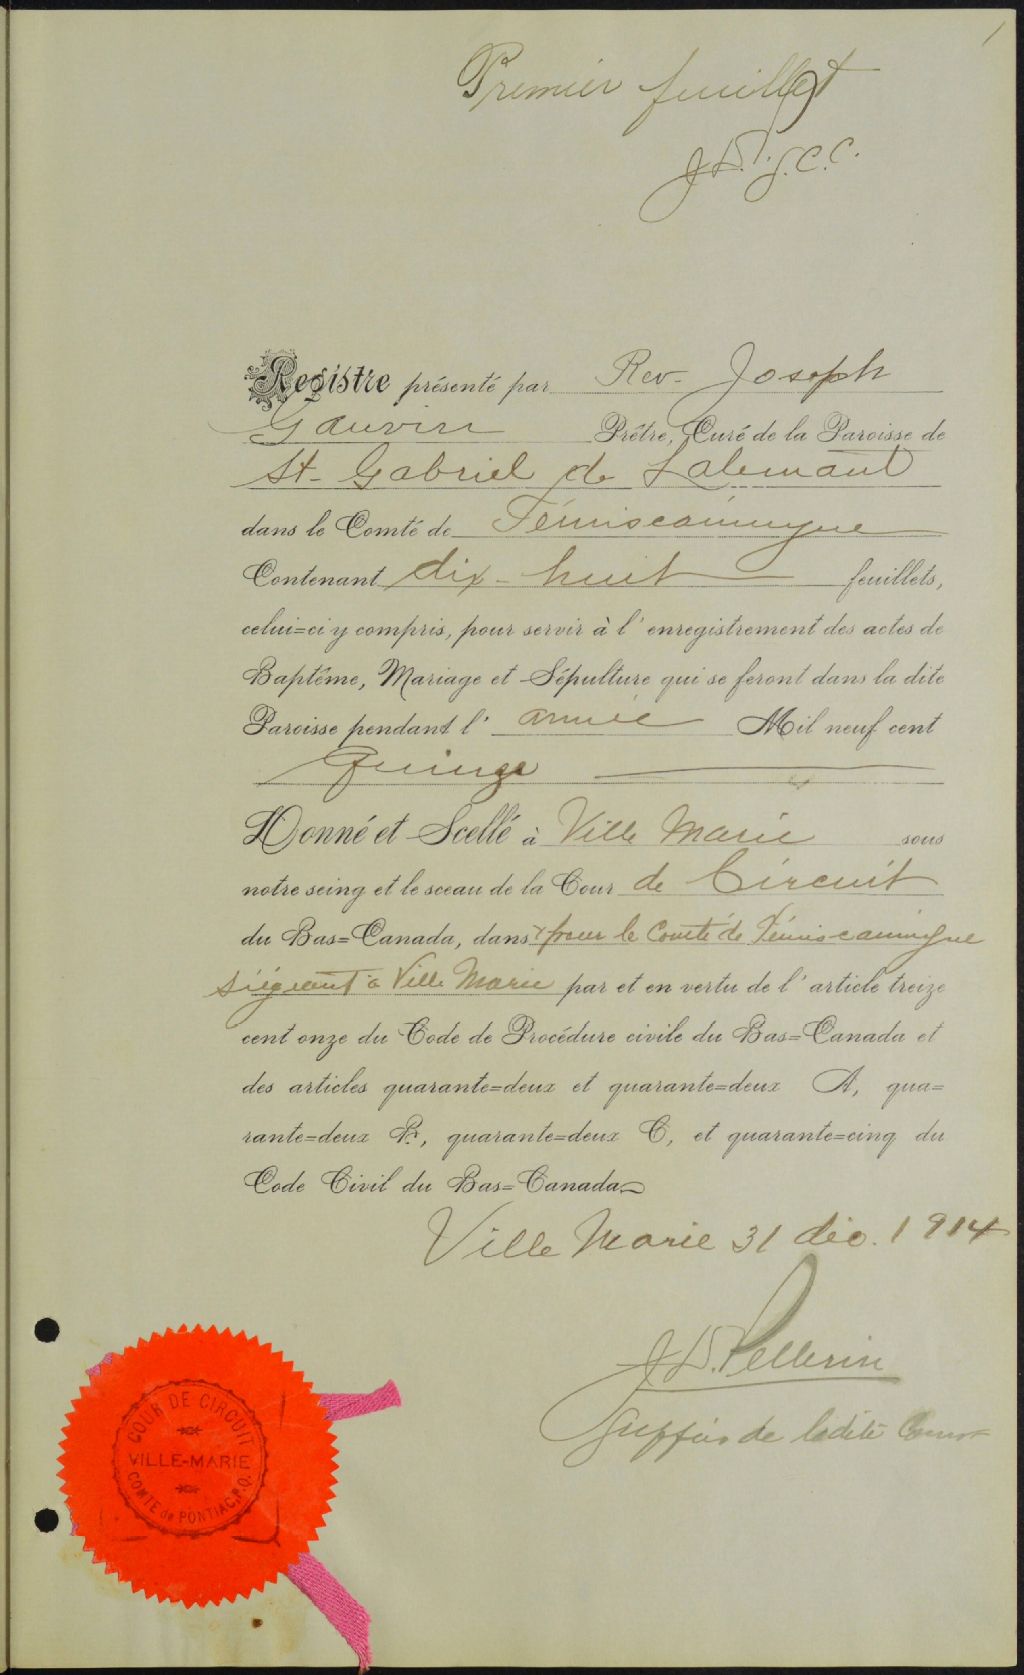 1
Premier feuillet
J.D.P. g.C.C.
Registre présenté par Rev. Joseph
Gauvin Prêtre, Curé de la Paroisse de
St. Gabriel de Lalemant
dans le Comté de Témiscamingue
Contenant dix-huit feuillets,
celui=ci y compris, pour servir à l'enregistrement des actes de
Baptême, Mariage et Sépulture qui se feront dans la dite
Paroisse pendant l'année Mil neuf cent
Quinze
Donné et Scellé à Ville Marie sous
notre seing et le sceau de la Cour de Circuit
du Bas=Canada, dans & pour le Comté de Témiscamingue
siégeant à Ville Marie par et en vertu de l'article treize
cent onze du Code de Procédure civile du Bas=Canada et
des articles quarante=deux et quarante=deux A, qua=
rante=deux B, quarante=deux C, et quarante=cinq du
Code Civil du Bas=Canada
Ville Marie 31 déc. 1914
J.D. Pellerin
Greffier de ladite Cour
COUR DE CIRCUIT
VILLE-MARIE
COMTE de PONTIAC, P.Q.